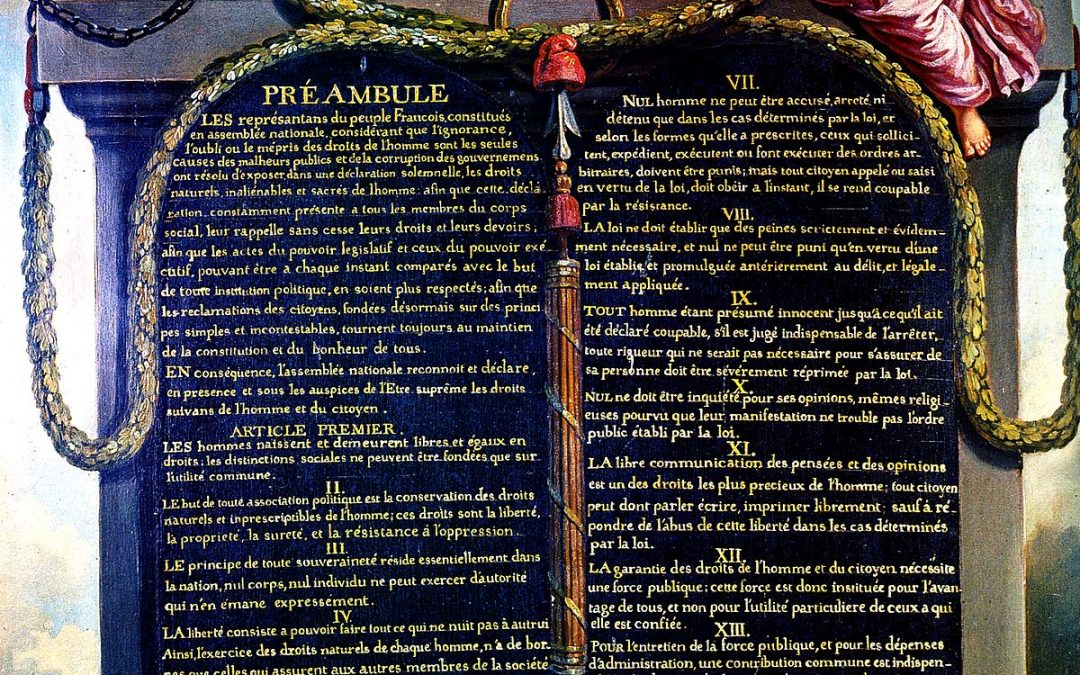 PRÉAMBULE
LES représantans du peuple Francois, constitués
en assemblée nationale, considérant que l'ignorance,
l'oubli ou le mépris des droits de l'homme sont les seules
causes des malheurs publics et de la corruption des gouvernemens
ont résolu d'exposer, dans une déclaration solemnelle, les droits
naturels, inaliénables et sacrés de l'homme: afin que cette décla
ration, constamment présente a tous les membres du corps
social, leur rappelle sans cesse leurs droits et leurs devoirs;
afin que les actes du povoir législatif et ceux du pouvoir exé
cutif, pouvant être a chaque instant comparés avec le but
de toute institution politique, en soient plus respectés; afin que
les reclamations des citoyens, fondées désormais sur des princi
pes simples et incontestables, tournent toujours au maintien
de la constitution et du bonheur de tous.
EN conséquence, l'assemblée nationale reconnoit et déclare,
en presence et sous les auspices de l'Etre suprême les droits
suivans de l'homme et du citoyen.
ARTICLE PREMIER.
LES hommes naissent et demeurent libres et égaux en
droits; les distinctions sociales ne peuvent être fondées que sur
l'utilité commune.
II.
LE but de toute association politique est la conservation des droits
naturels et inprescriptibles de l'homme; ces droits sont la liberté,
la propriete, la sureté, et la résistance à l'oppression.
III.
LE principe de toute souveraineté réside essentiellement dans
la nation, nul corps, nul individu ne peut exercer d'autorité
qui n'en émane expressément.
IV.
LA liberté consiste a pouvoir faire tout ce qui ne nuit pas à autrui
Ainsi, l'exercice des droits naturels de chaque homme, n'a de bor-
nes que celles qui assurent aux autres membres de la société
VII.
NUL homme ne peut être accusé, arreté, ni
détenu que dans les cas déterminés par la loi, et
selon les formes qu'elle a prescrites, ceux qui sollici-
tent, expédient, exécutent ou font exécuter des ordres ar-
bitraires, doivent être punis; mais tout citoyen appelé ou saisi
en vertu de la loi, doit obéir a l'instant, il se rend coupable
par la résistance.
VIII.
LA loi ne doit établir que des peines strictement et évidem-
ment nécessaire, et nul ne peut être puni qu'en vertu d'une
loi établie, et promulguée antérierement au délit, et légale-
ment appliquée.
IX.
TOUT homme étant présumé innocent jusqu'a ce qu'il ait
été déclaré coupable, s'il est jugé indispensable de l'arrêter,
toute rigueur qui ne serait pas nécessaire pour s'assurer de
sa personne doit être sévèrement réprimée par la loi.
X.
NUL ne doit être inquiété pour ses opinions, mêmes religi-
euses pourvu que leur manifestation ne trouble pas l'ordre
public établi par la loi.
XI.
LA libre communication des pensées et des opinions
est un des droits les plus precieux de l'homme; tout citoyen
peut dont parler écrire, imprimer librement; sauf à ré-
pondre de l'abus de cette liberté dans les cas déterminés
par la loi.
XII.
LA garantie des droits de l'homme et du citoyen nécessite
une force publique; cette force est donc instituée pour l'avan
tage de tous, et non pour l'utilité particuliere de ceux a qui
elle est confiée.
XIII.
POUR l'entretien de la force publique, et pour les dépenses
d'administration, une contribution commune est indispen-